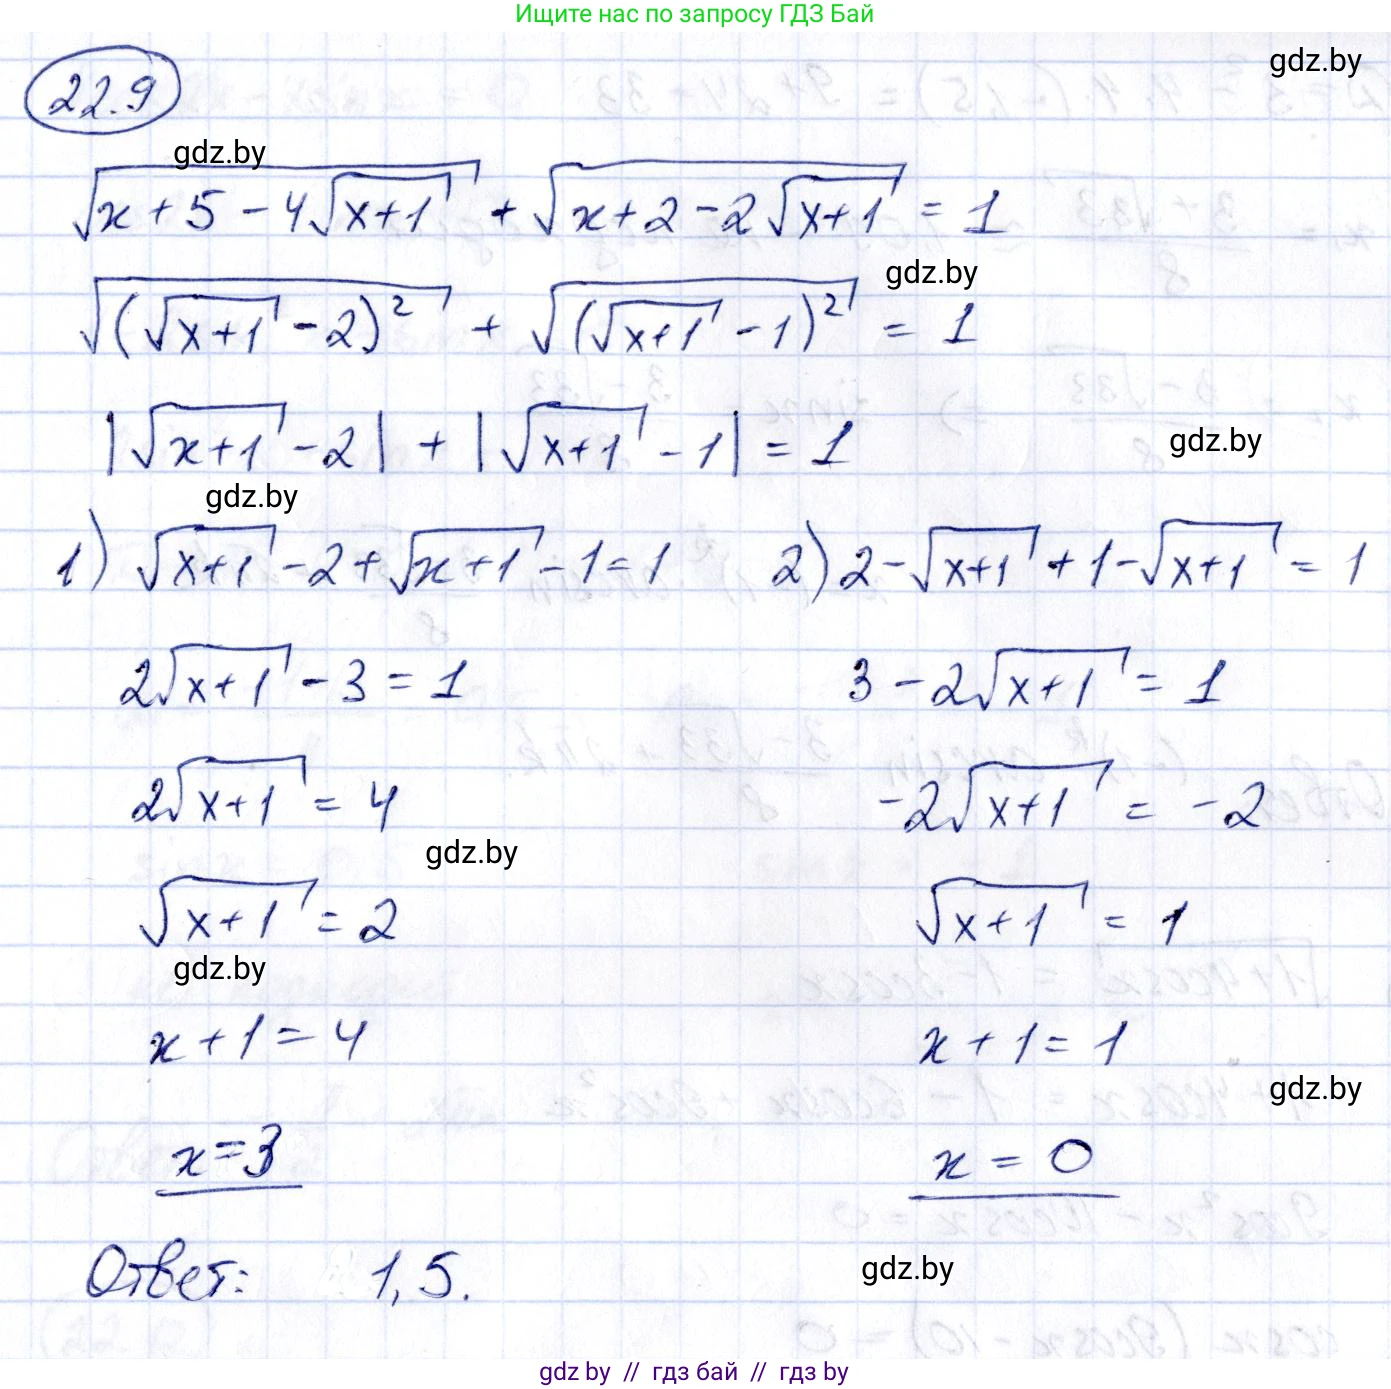 Ищите нас по запросу ГДЗ Бай
gdz.by
22.9
gdz.by
√(x + 5 - 4√(x+1)) + √(x + 2 - 2√(x+1)) = 1
gdz.by
√((√(x+1) - 2)²) + √((√(x+1) - 1)²) = 1
|√(x+1) - 2| + |√(x+1) - 1| = 1
gdz.by
gdz.by
1) √(x+1) - 2 + √(x+1) - 1 = 1
2√(x+1) - 3 = 1
2√(x+1) = 4
gdz.by
√(x+1) = 2
gdz.by
x + 1 = 4
x = 3
2) 2 - √(x+1) + 1 - √(x+1) = 1
3 - 2√(x+1) = 1
-2√(x+1) = -2
√(x+1) = 1
x + 1 = 1
gdz.by
x = 0
Ответ: 1,5.
gdz.by
gdz by // гдз бай // gdz by